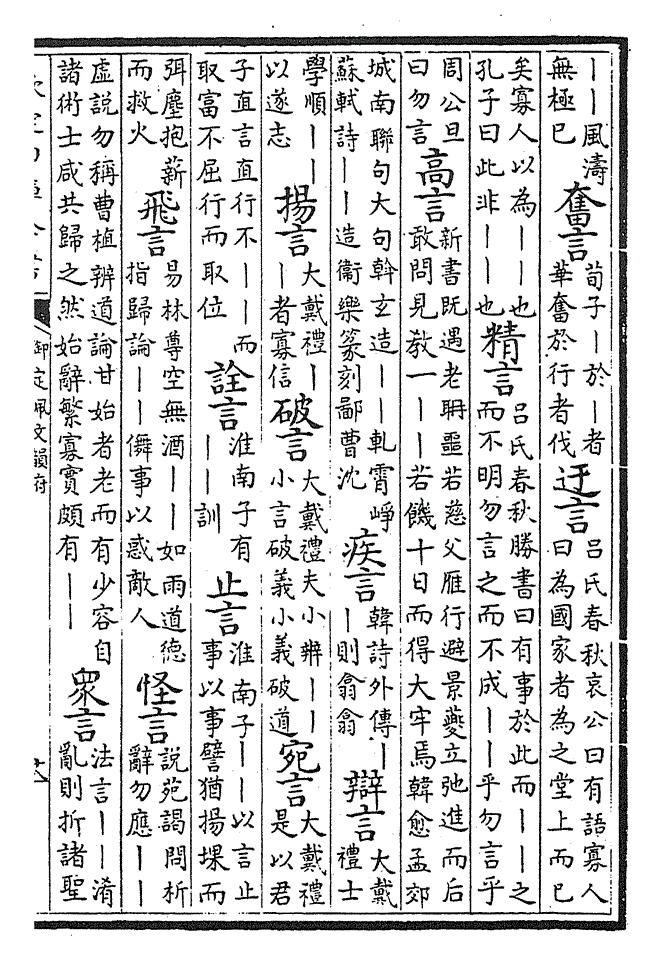 丨丨風濤無極已 奮言 荀子丨於丨者華奮於行者伐 迂言 呂氏春秋哀公曰有語寡人曰為國家者為之堂上而已
矣寡人以為丨丨也孔子曰此非丨丨也 精言 呂氏春秋勝書曰有事於此而丨丨之而不明勿言之而不成丨丨乎勿言乎
周公旦曰勿言 高言 新書既遇老聃噩若慈父雁行避景夔立弛進而后敢問見教一丨丨丨若饑十日而得大牢焉韓愈孟郊
城南聯句大句斡玄造丨丨軋霄崢蘇軾詩丨丨造衞樂篆刻鄙曹沈 疾言 韓詩外傳丨丨則翕翕 辯言 大戴禮士
學順丨丨以遂志 揚言 大戴禮丨丨者寡信 破言 大戴禮夫小辨丨丨小言破義小義破道 宛言 大戴禮是以君
子直言直行不丨丨而取富不屈行而取位 詮言 淮南子有丨丨訓 止言 淮南子丨丨以言止事以事譬猶揚堁而
弭塵抱薪而救火 飛言 易林尊空無酒丨丨如雨道德指歸論丨丨儛事以惑敵人 怪言 說苑謁問析辭勿應丨丨
虛說勿稱曹植辨道論甘始者老而有少容自諸術士咸共歸之然始辭繁寡實頗有丨丨 衆言 法言丨丨淆亂則折諸聖
御定佩文韻府